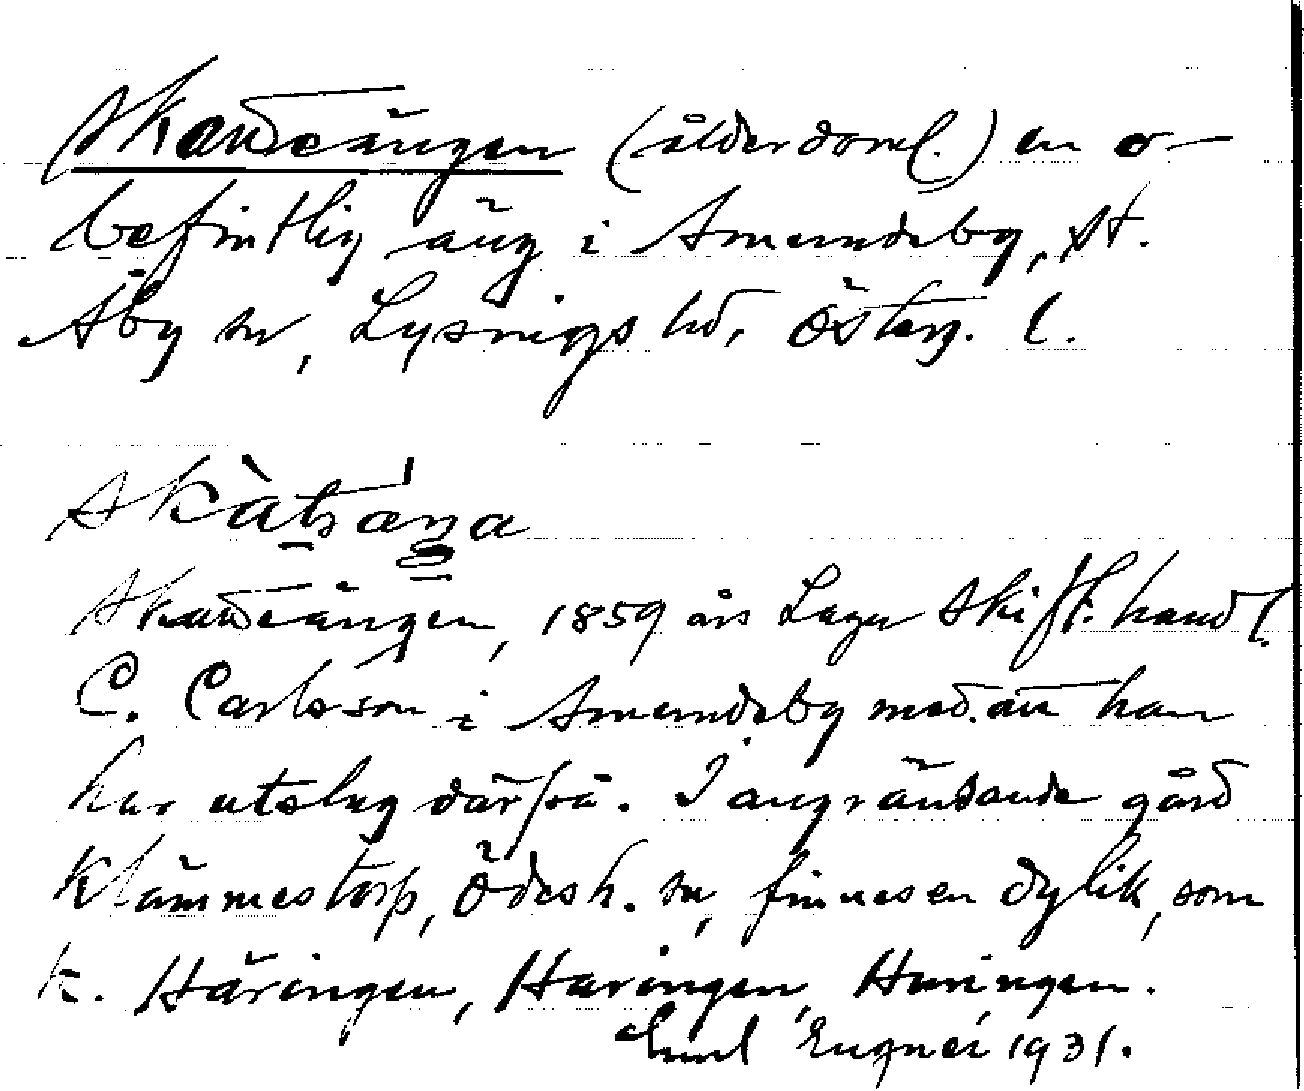 Skattängen (ålderdoml.) en o-
befintlig äng i Amundeby, St.
Åby sn, Lysings hd, Österg. l.
Skattängen, 1859 års Laga Skift. handl.
C. Carlsson i Amundeby med. att han
har utslag därpå. I angränsande gård
Klämmestorp, Ödesh. sn, finnes en dylik, som
k. Häringen, Haringen, Huringen.
Emil Engner 1931.